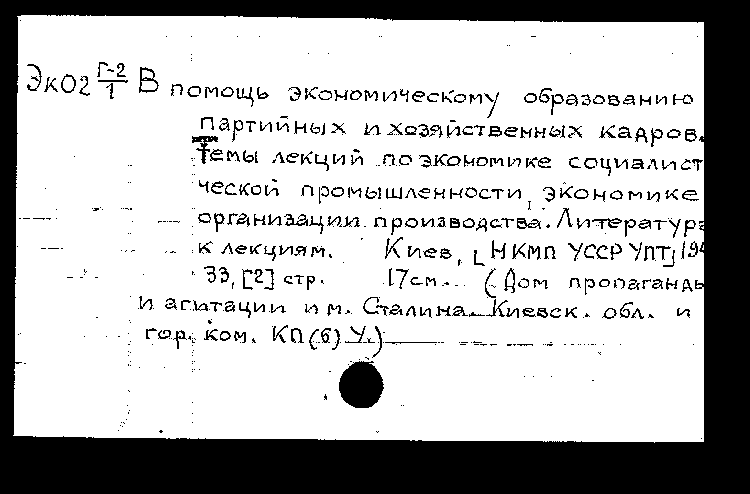 ЭкО2 Г-2/1 В помощь экономическому образованию
партийных и хозяйственных кадров.
Темы лекций по экономике социалист
ческой промышленности, экономике
организации производства. Литератур
к лекциям. Киев, [НКМП УССР УПТ] 194
33, [2] стр. 17см. (Дом пропаганды
и агитации им. Сталина. Киевск. обл. и
гор. ком. КП(б) У.)